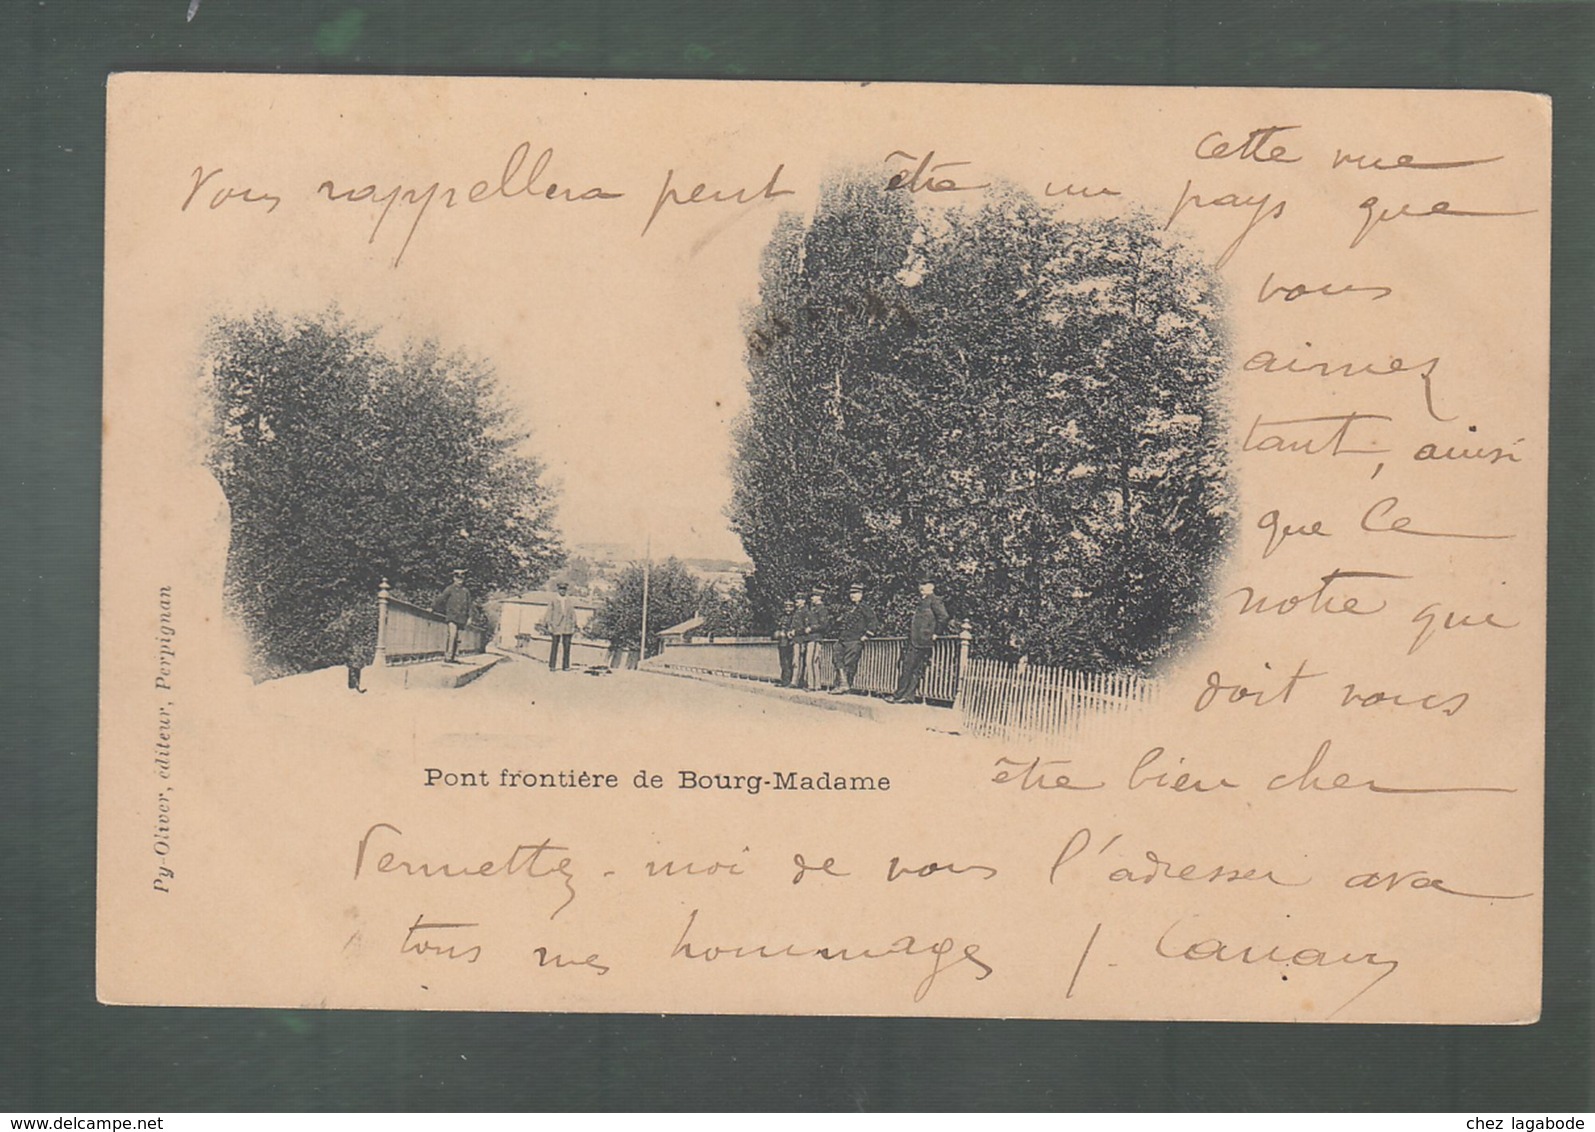 Cette vue
Vous rappellera peut être un pays que
vous
aimez
tant, ainsi
que le
notre qui
doit vous
être bien cher
Pont frontière de Bourg-Madame
Permettez-moi de vous l'adresser avec
tous mes hommages J.
Py-Oliver, éditeur, Perpignan
chez lagabode